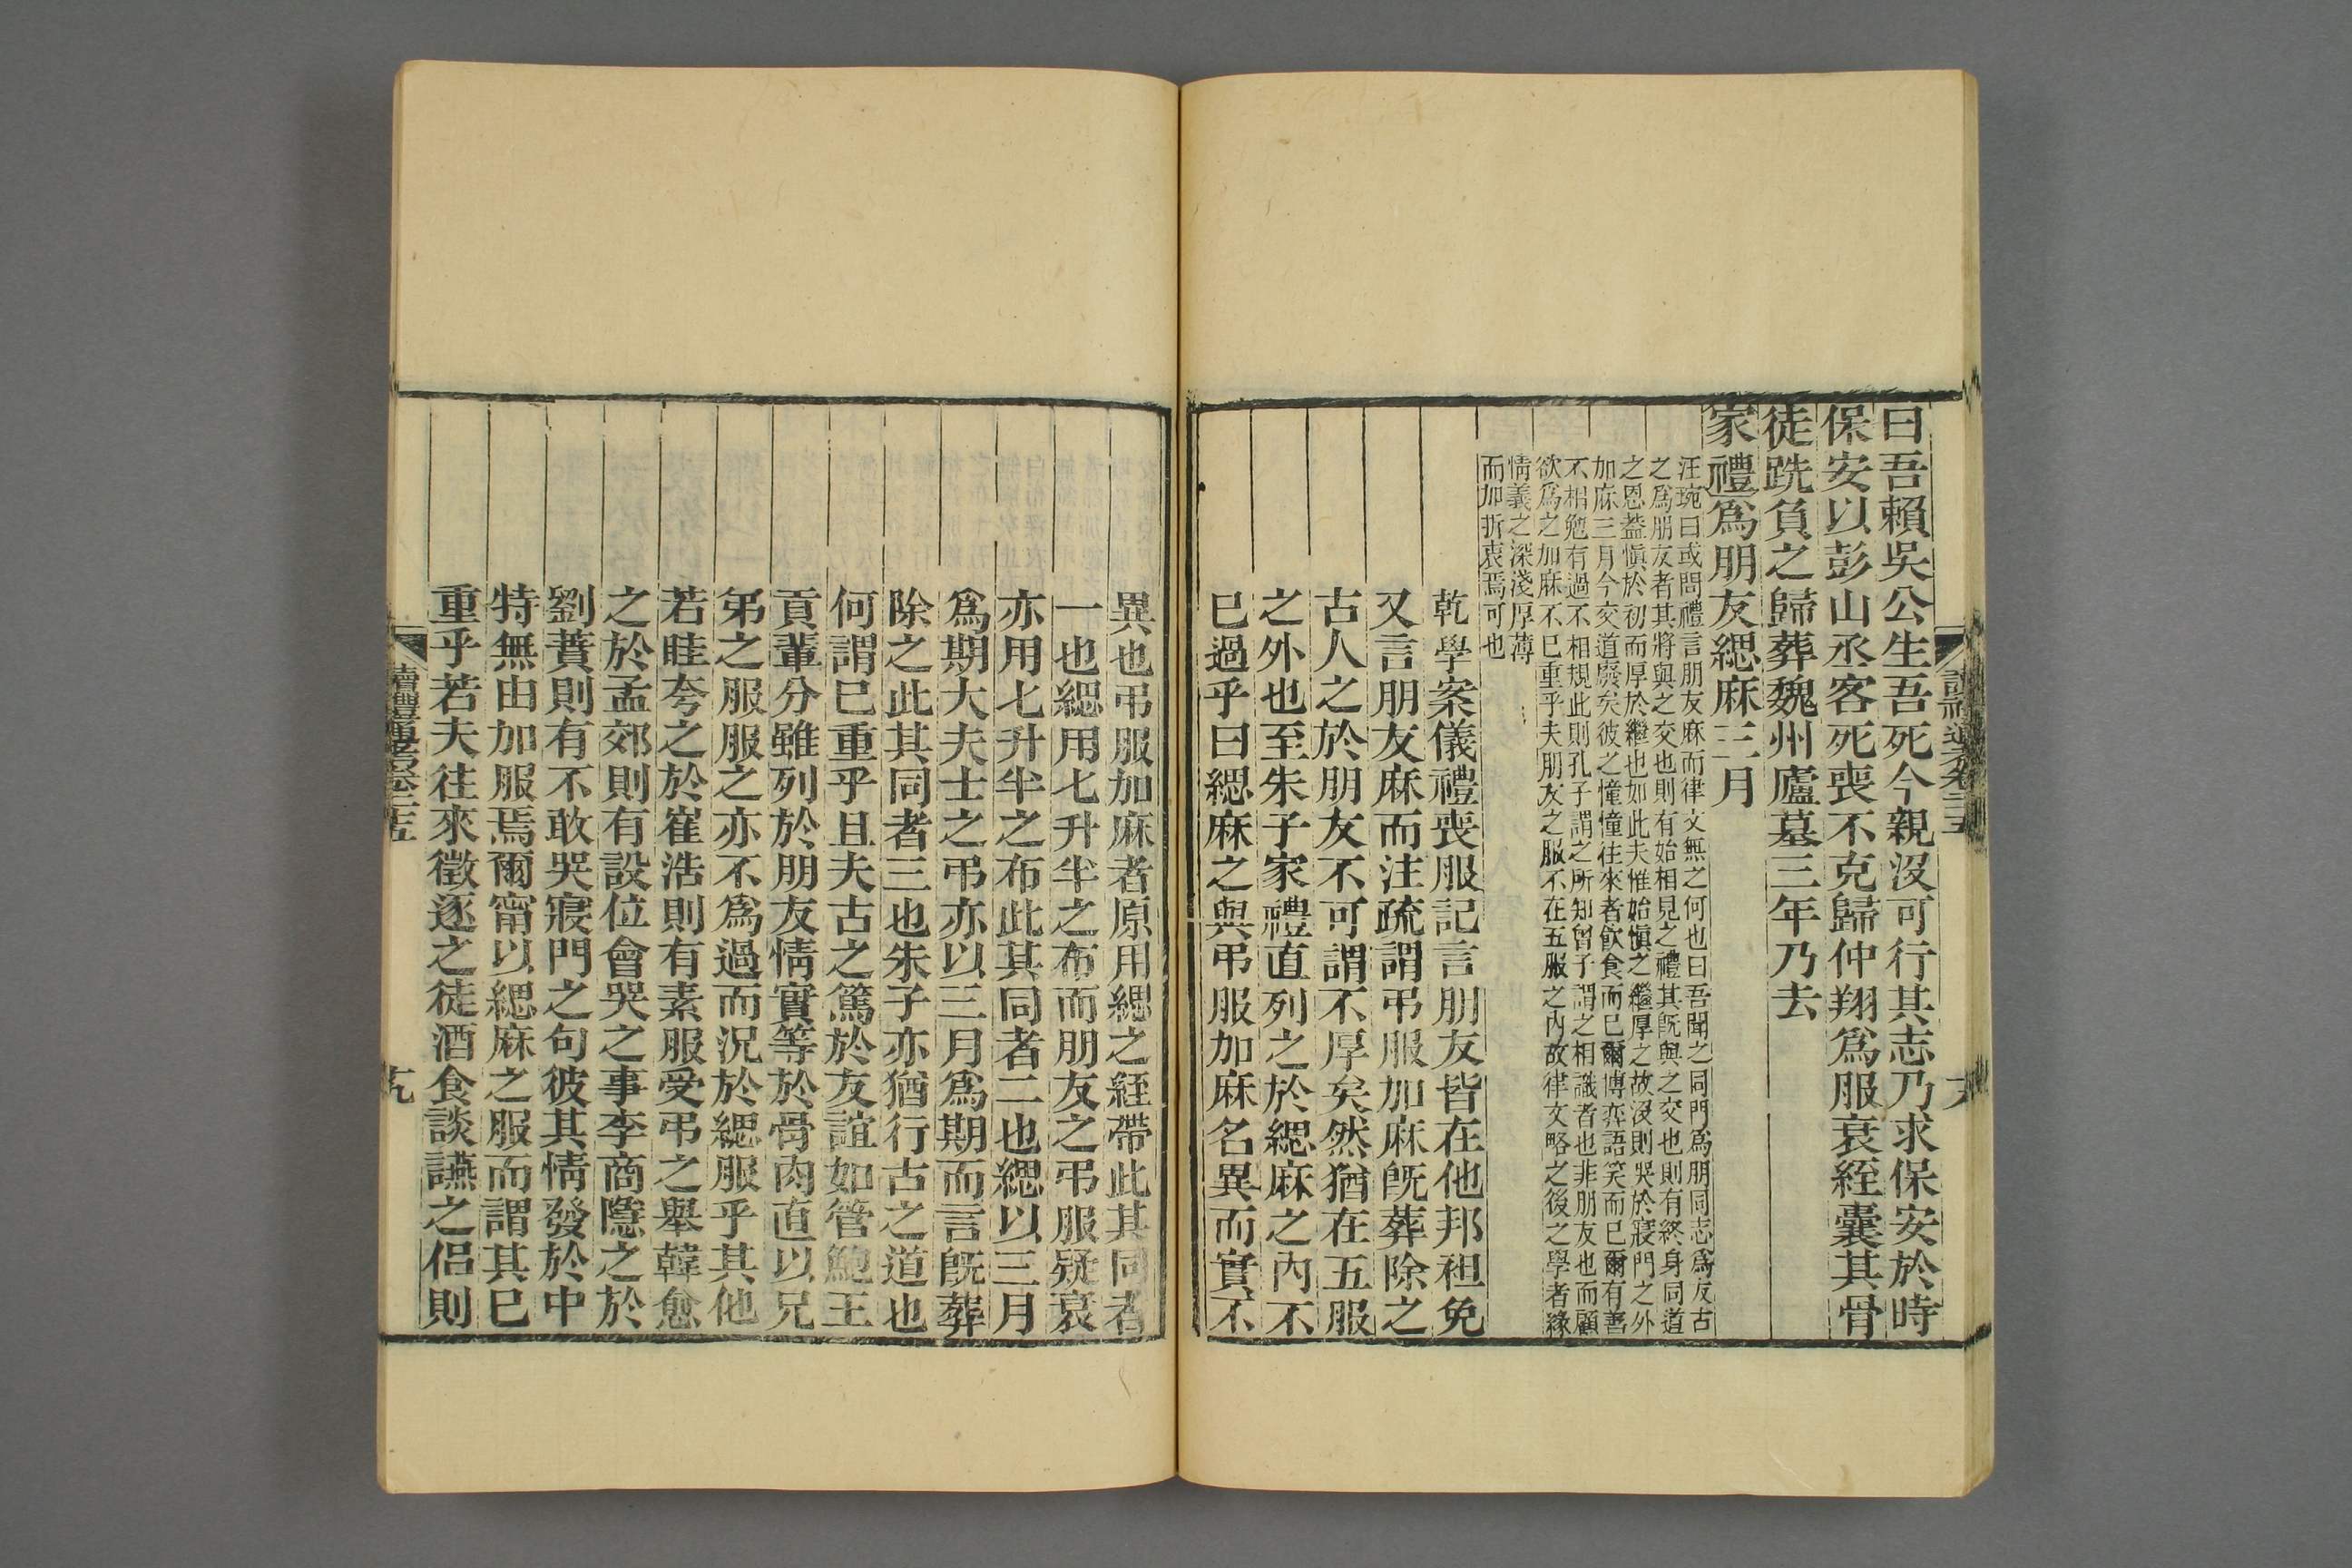 曰吾賴吳公生吾死今親沒可行其志乃求保安於時
保安以彭山丞客死喪不克歸仲翔爲服衰絰囊其骨
徒跣負之歸葬魏州廬墓三年乃去
家禮爲朋友緦麻三月
汪琬曰或問禮言朋友麻而律文無之何也曰吾聞之同門爲朋同志爲友古
之爲朋友者其將與之交也則有始相見之禮其旣與之交也則有終身同道
之恩葢愼於初而厚於繼也如此夫惟始愼之繼厚之故沒則哭於寢門之外
加麻三月今交道廢矣彼之憧憧往來者飮食而已爾博弈語笑而已爾有善
不相勉有過不相規此則孔子謂之所知曾子謂之相識者也非朋友也而顧
欲爲之加麻不已重乎夫朋友之服不在五服之內故律文略之後之學者緣
情義之深淺厚薄
而加折衷焉可也
乾學案儀禮喪服記言朋友皆在他邦袒免
又言朋友麻而注疏謂弔服加麻旣葬除之
古人之於朋友不可謂不厚矣然猶在五服
之外也至朱子家禮直列之於緦麻之內不
已過乎曰緦麻之與弔服加麻名異而實不
異也弔服加麻者原用緦之絰帶此其同者
一也緦用七升半之布而朋友之弔服疑衰
亦用七升半之布此其同者二也緦以三月
爲期大夫士之弔亦以三月爲期而言旣葬
除之此其同者三也朱子亦猶行古之道也
何謂已重乎且夫古之篤於友誼如管鮑王
貢輩分雖列於朋友情實等於骨肉直以兄
弟之服服之亦不爲過而況於緦服乎其他
若眭夸之於崔浩則有素服受弔之舉韓愈
之於孟郊則有設位會哭之事李商隱之於
劉蕡則有不敢哭寢門之句彼其情發於中
特無由加服焉爾甯以緦麻之服而謂其已
重乎若夫往來徵逐之徒酒食談讌之侶則
讀禮通考卷二十五